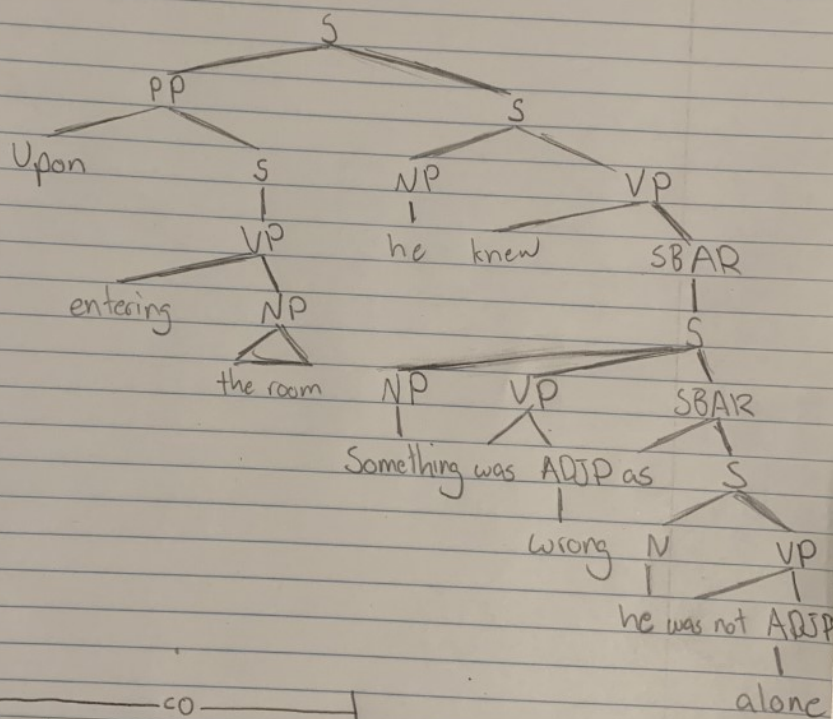 S
PP S
Upon S NP VP
VP he knew SBAR
entering NP S
the room NP VP SBAR
Something was ADJP as S
wrong N VP
he was not ADJP
alone
CO